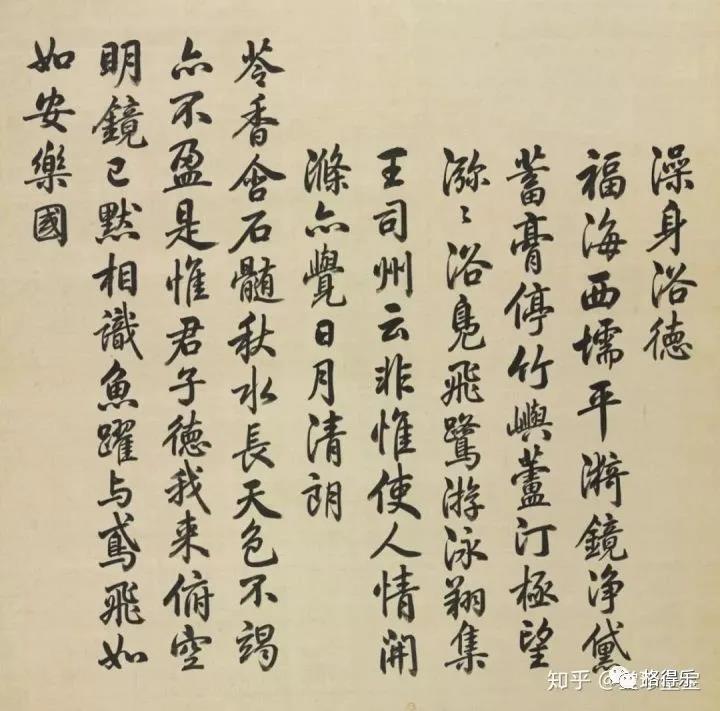 澡身浴德
福海西壖平漪鏡净黛
蓄膏停竹嶼蘆汀極望
㳽〻浴鳬飛鷺游泳翔集
王司州云非惟使人情開
滌亦覺日月清朗
苓香含石髓秋水長天色不竭
亦不盈是惟君子德我来俯空
明鏡已默相識魚躍与鳶飛如
如安樂國
知乎
格得乐